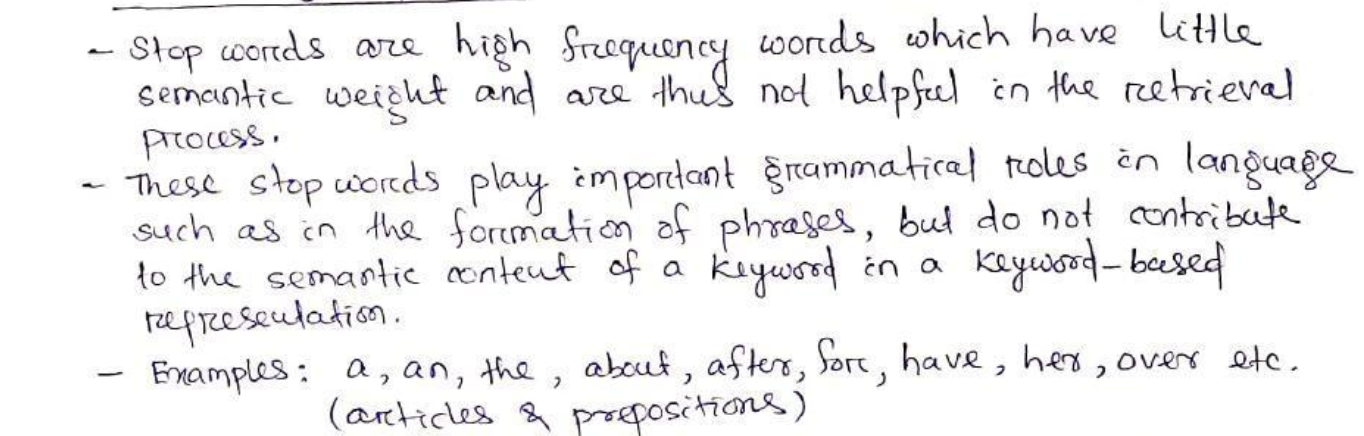 - Stop words are high frequency words which have little
semantic weight and are thus not helpful in the retrieval
process.
- These stop words play important grammatical roles in language
such as in the formation of phrases, but do not contribute
to the semantic content of a keyword in a keyword-based
representation.
- Examples: a, an, the, about, after, for, have, her, over etc.
(articles & prepositions)